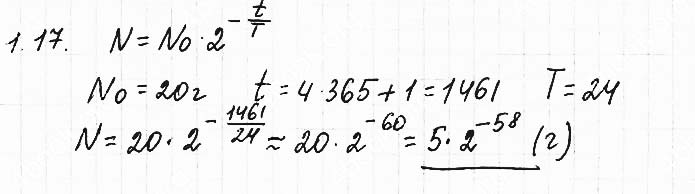 1.17. N = N₀ · 2^(-t/T)
N₀ = 20г t = 4·365+1 = 1461 T = 24
N = 20 · 2^(-1461/24) ≈ 20 · 2^(-60) = 5 · 2^(-58) (г)